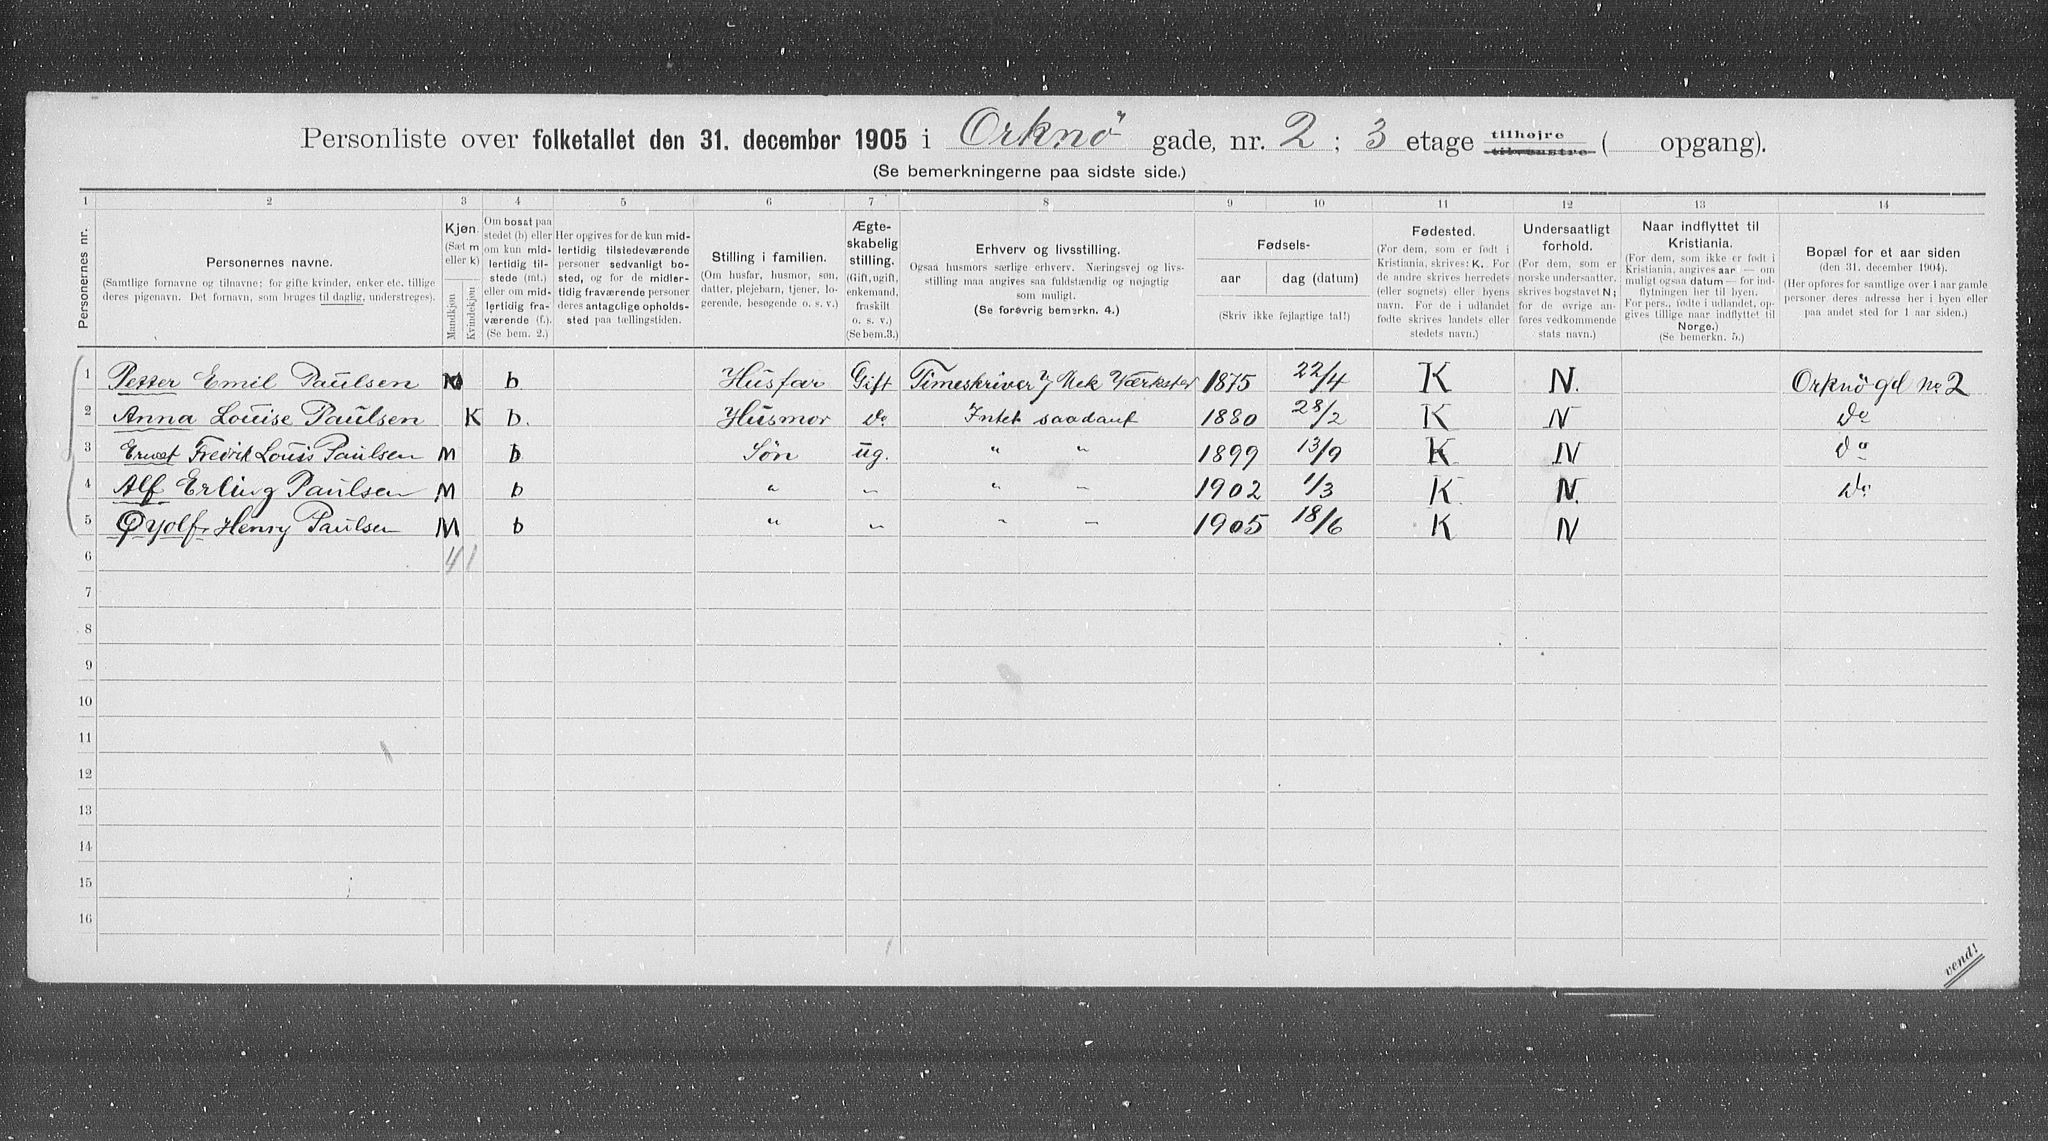 Personliste over folketallet den 31. december 1905 i Orknö gade, nr. 2 ; 3 etage tilhøjre tilvenstre ( opgang).
(Se bemerkningerne paa sidste side.)
1 2 3 4 5 6 7 8 9 10 11 12 13 14
Personernes nr.
Personernes navne.
(Samtlige fornavne og tilnavne; for gifte kvinder, enker etc. tillige
deres pigenavn. Det fornavn, som bruges til daglig, understreges).
Kjøn.
(Sæt m
eller k)
Mandkjøn
Kvindekjøn
Om bosat paa
stedet (b) eller
om kun mid-
lertidig til-
stede (mt.)
eller om mid-
lertidig fra-
værende (f.).
(Se bem. 2.)
Her opgives for de kun mid-
lertidig tilstedeværende
personer sedvanligt bo-
sted, og for de midler-
tidig fraværende personer
deres antagelige opholds-
sted paa tællingstiden.
Stilling i familien.
(Om husfar, husmor, søn,
datter, plejebarn, tjener, lo-
gerende, besøgende o. s. v.)
Ægte-
skabelig
stilling.
(Gift, ugift,
enkemand,
fraskilt
o. s. v.)
(Se bem.3.)
Erhverv og livsstilling.
Ogsaa husmors særlige erhverv. Næringsvej og livs-
stilling maa angives saa fuldstændig og nøjagtig
som muligt.
(Se forøvrig bemerkn. 4.)
Fødsels-
aar dag (datum)
(Skriv ikke fejlagtige tal!)
Fødested.
(For dem, som er født i
Kristiania, skrives: K. For
de andre skrives herredets
(eller sognets) eller byens
navn. For de i udlandet
fødte skrives landets eller
stedets navn.)
Undersaatligt
forhold.
(For dem, som er
norske undersaatter,
skrives bogstavet N;
for de øvrige an-
føres vedkommende
stats navn.)
Naar indflyttet til
Kristiania.
(For dem, som ikke er født i
Kristiania, angives aar — om
muligt ogsaa datum — for ind-
flytningen her til byen.
For pers., fødte i udlandet, op-
gives tillige naar indflyttet til
Norge.)
(Se bemerkn. 5.)
Bopæl for et aar siden
(den 31. december 1904).
(Her opføres for samtlige over 1 aar gamle
personer deres adresse her i byen eller
paa andet sted for 1 aar siden.)
1 Petter Emil Paulsen M b Husfar Gift Timeskriver Mek Værksted 1875 22/4 K N. Orknögd No 2
2 Anna Louise Paulsen K b. Husmor do Intet saadant 1880 28/2 K N do
3 Ernst Fredrik Louis Paulsen M b Søn ug. " " 1899 13/9 K N do
4 Alf Erling Paulsen M b " " " " 1902 1/3 K N. do
5 Øyolf Henry Paulsen M b " " " " 1905 18/6 K N
6 4 1
7
8
9
10
11
12
13
14
15
16
vend!